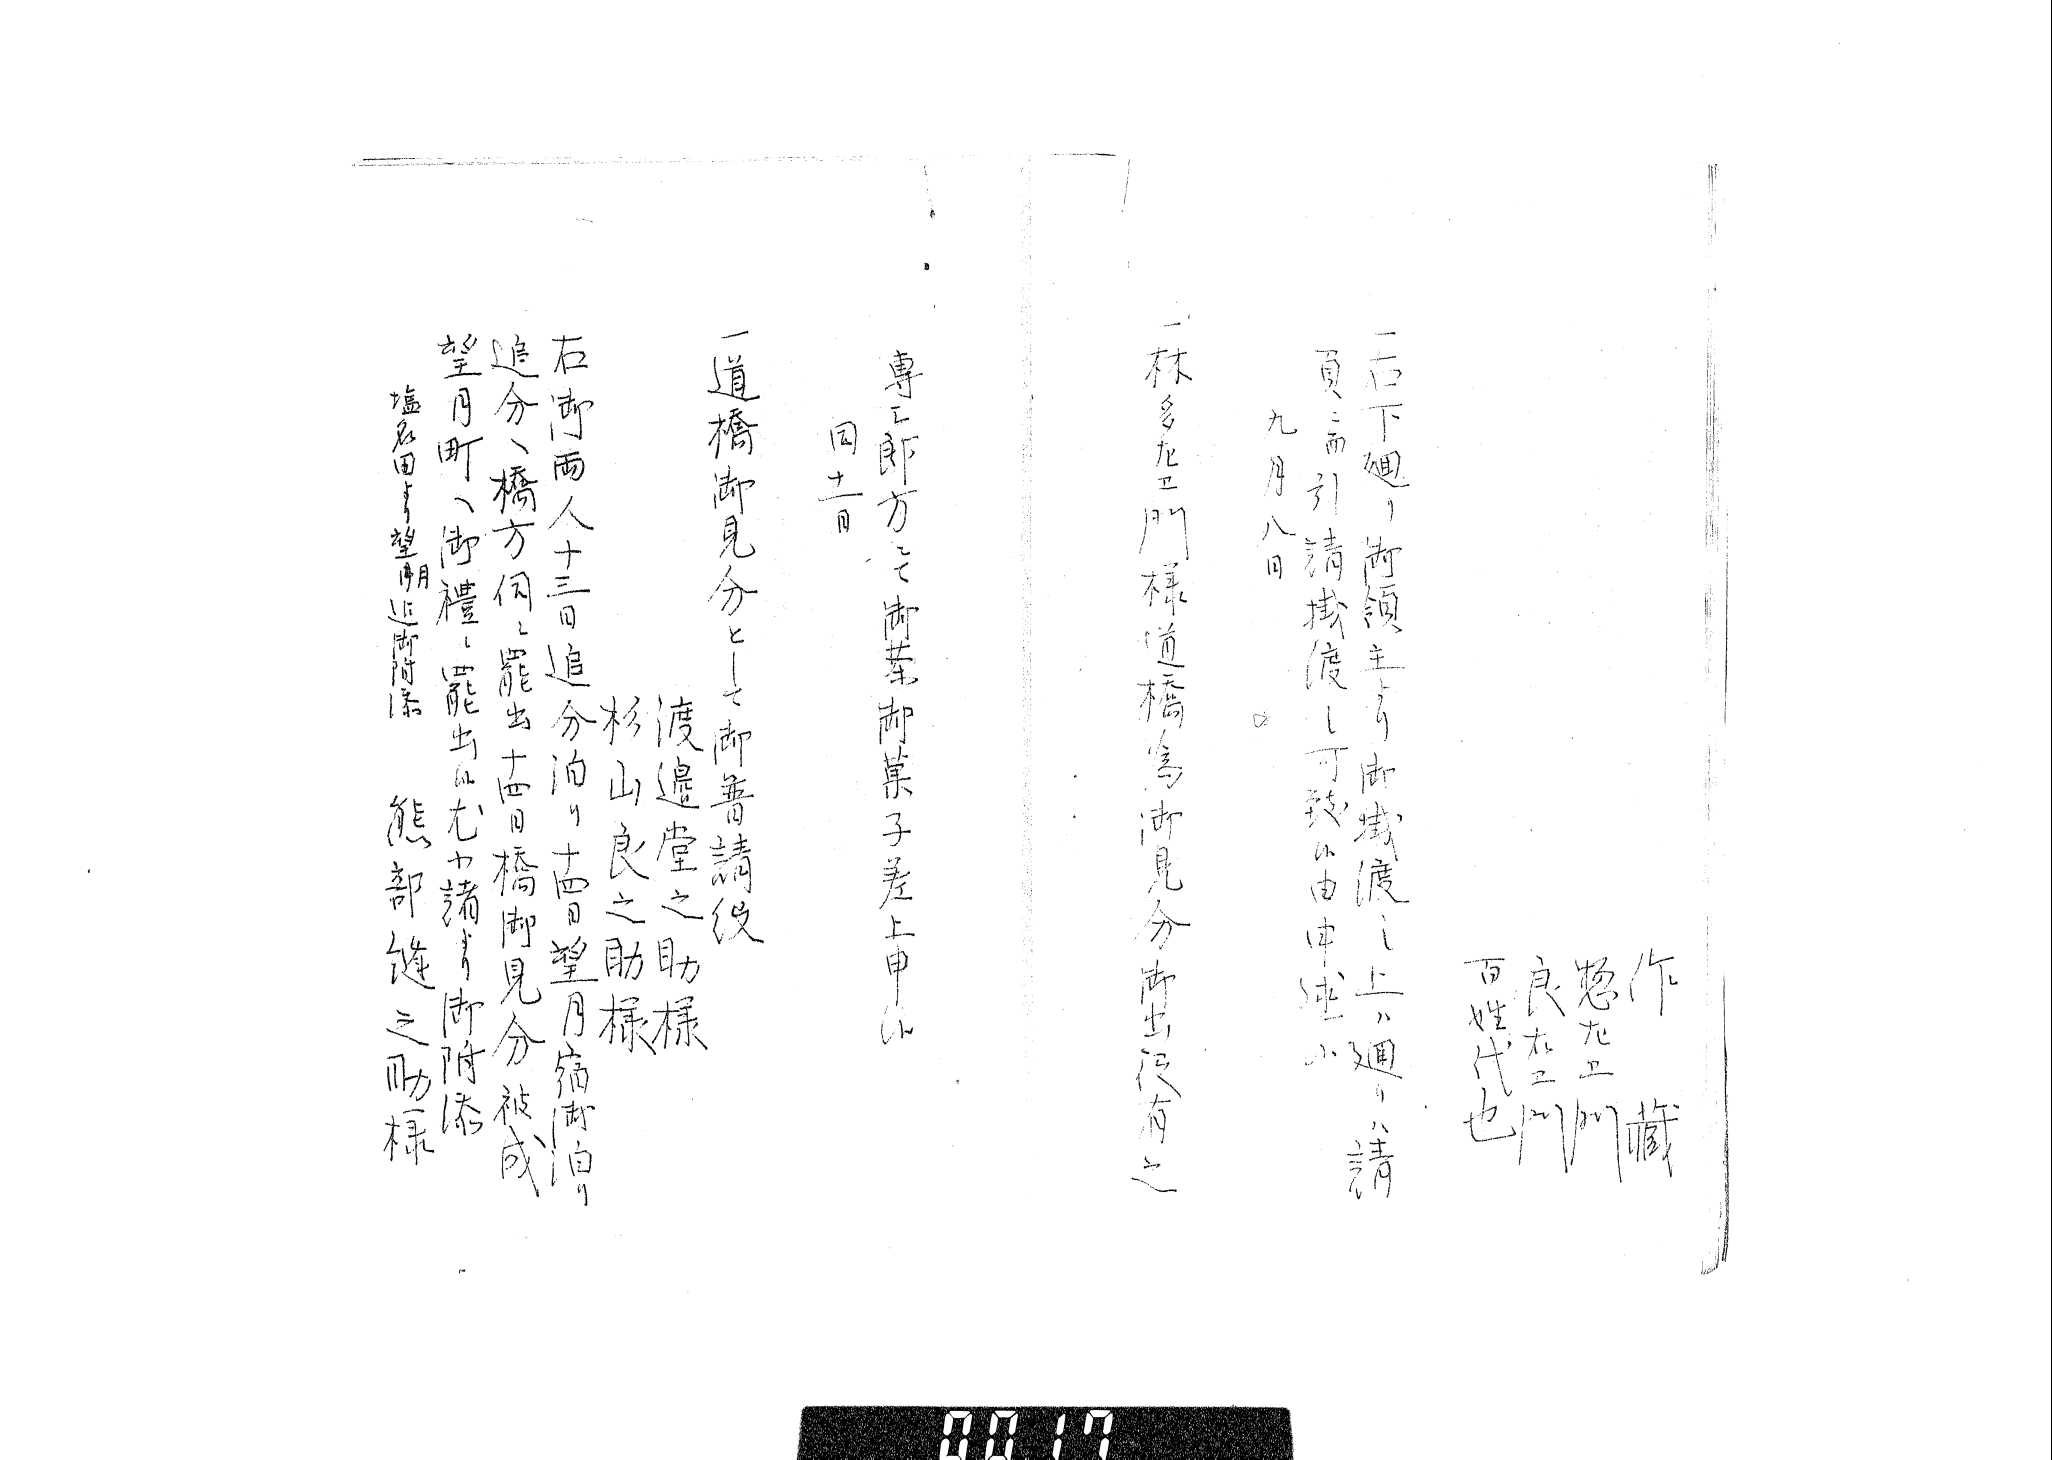 作藏
惣左卫門
良右卫門
百姓代也
一右下廻り御領主より御掛渡し上ハ廻りハ請
負ニ而引請掛渡し可致候由申述候
九月八日
一林多左卫門様道橋為御見分御出役有之
専三郎方ニて御茶御菓子差上申候
同十一日
一道橋御見分として御普請役
渡邉堂之助様
杉山良之助様
右御両人十三日追分泊り十四日望月宿御泊り
追分へ橋方伺ニ罷出十四日橋御見分被成
望月町へ御禮ニ罷出候尤小諸より御附添
塩名田より望月迄御附添 熊部縫之助様
0017